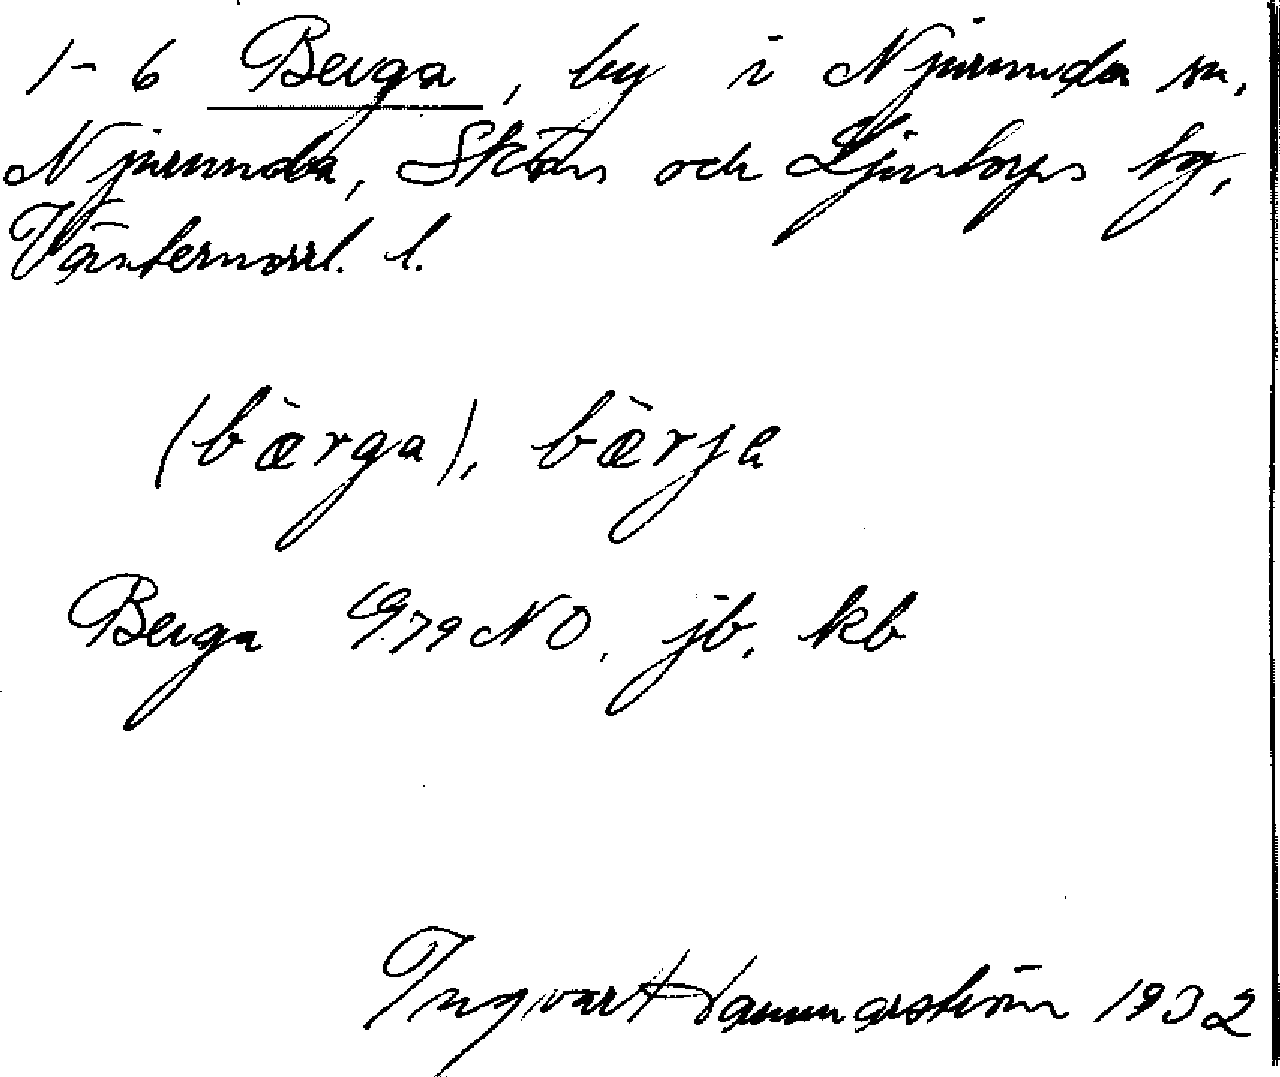 1-6 Berga, by i Njurunda sn,
Njurunda, Sköns och Ljustorps tg,
Västernorrl. l.
(bæ̀rga), bæ̀rja
Berga 79 NO, jb, kb
Ingvar Hammarström 1932